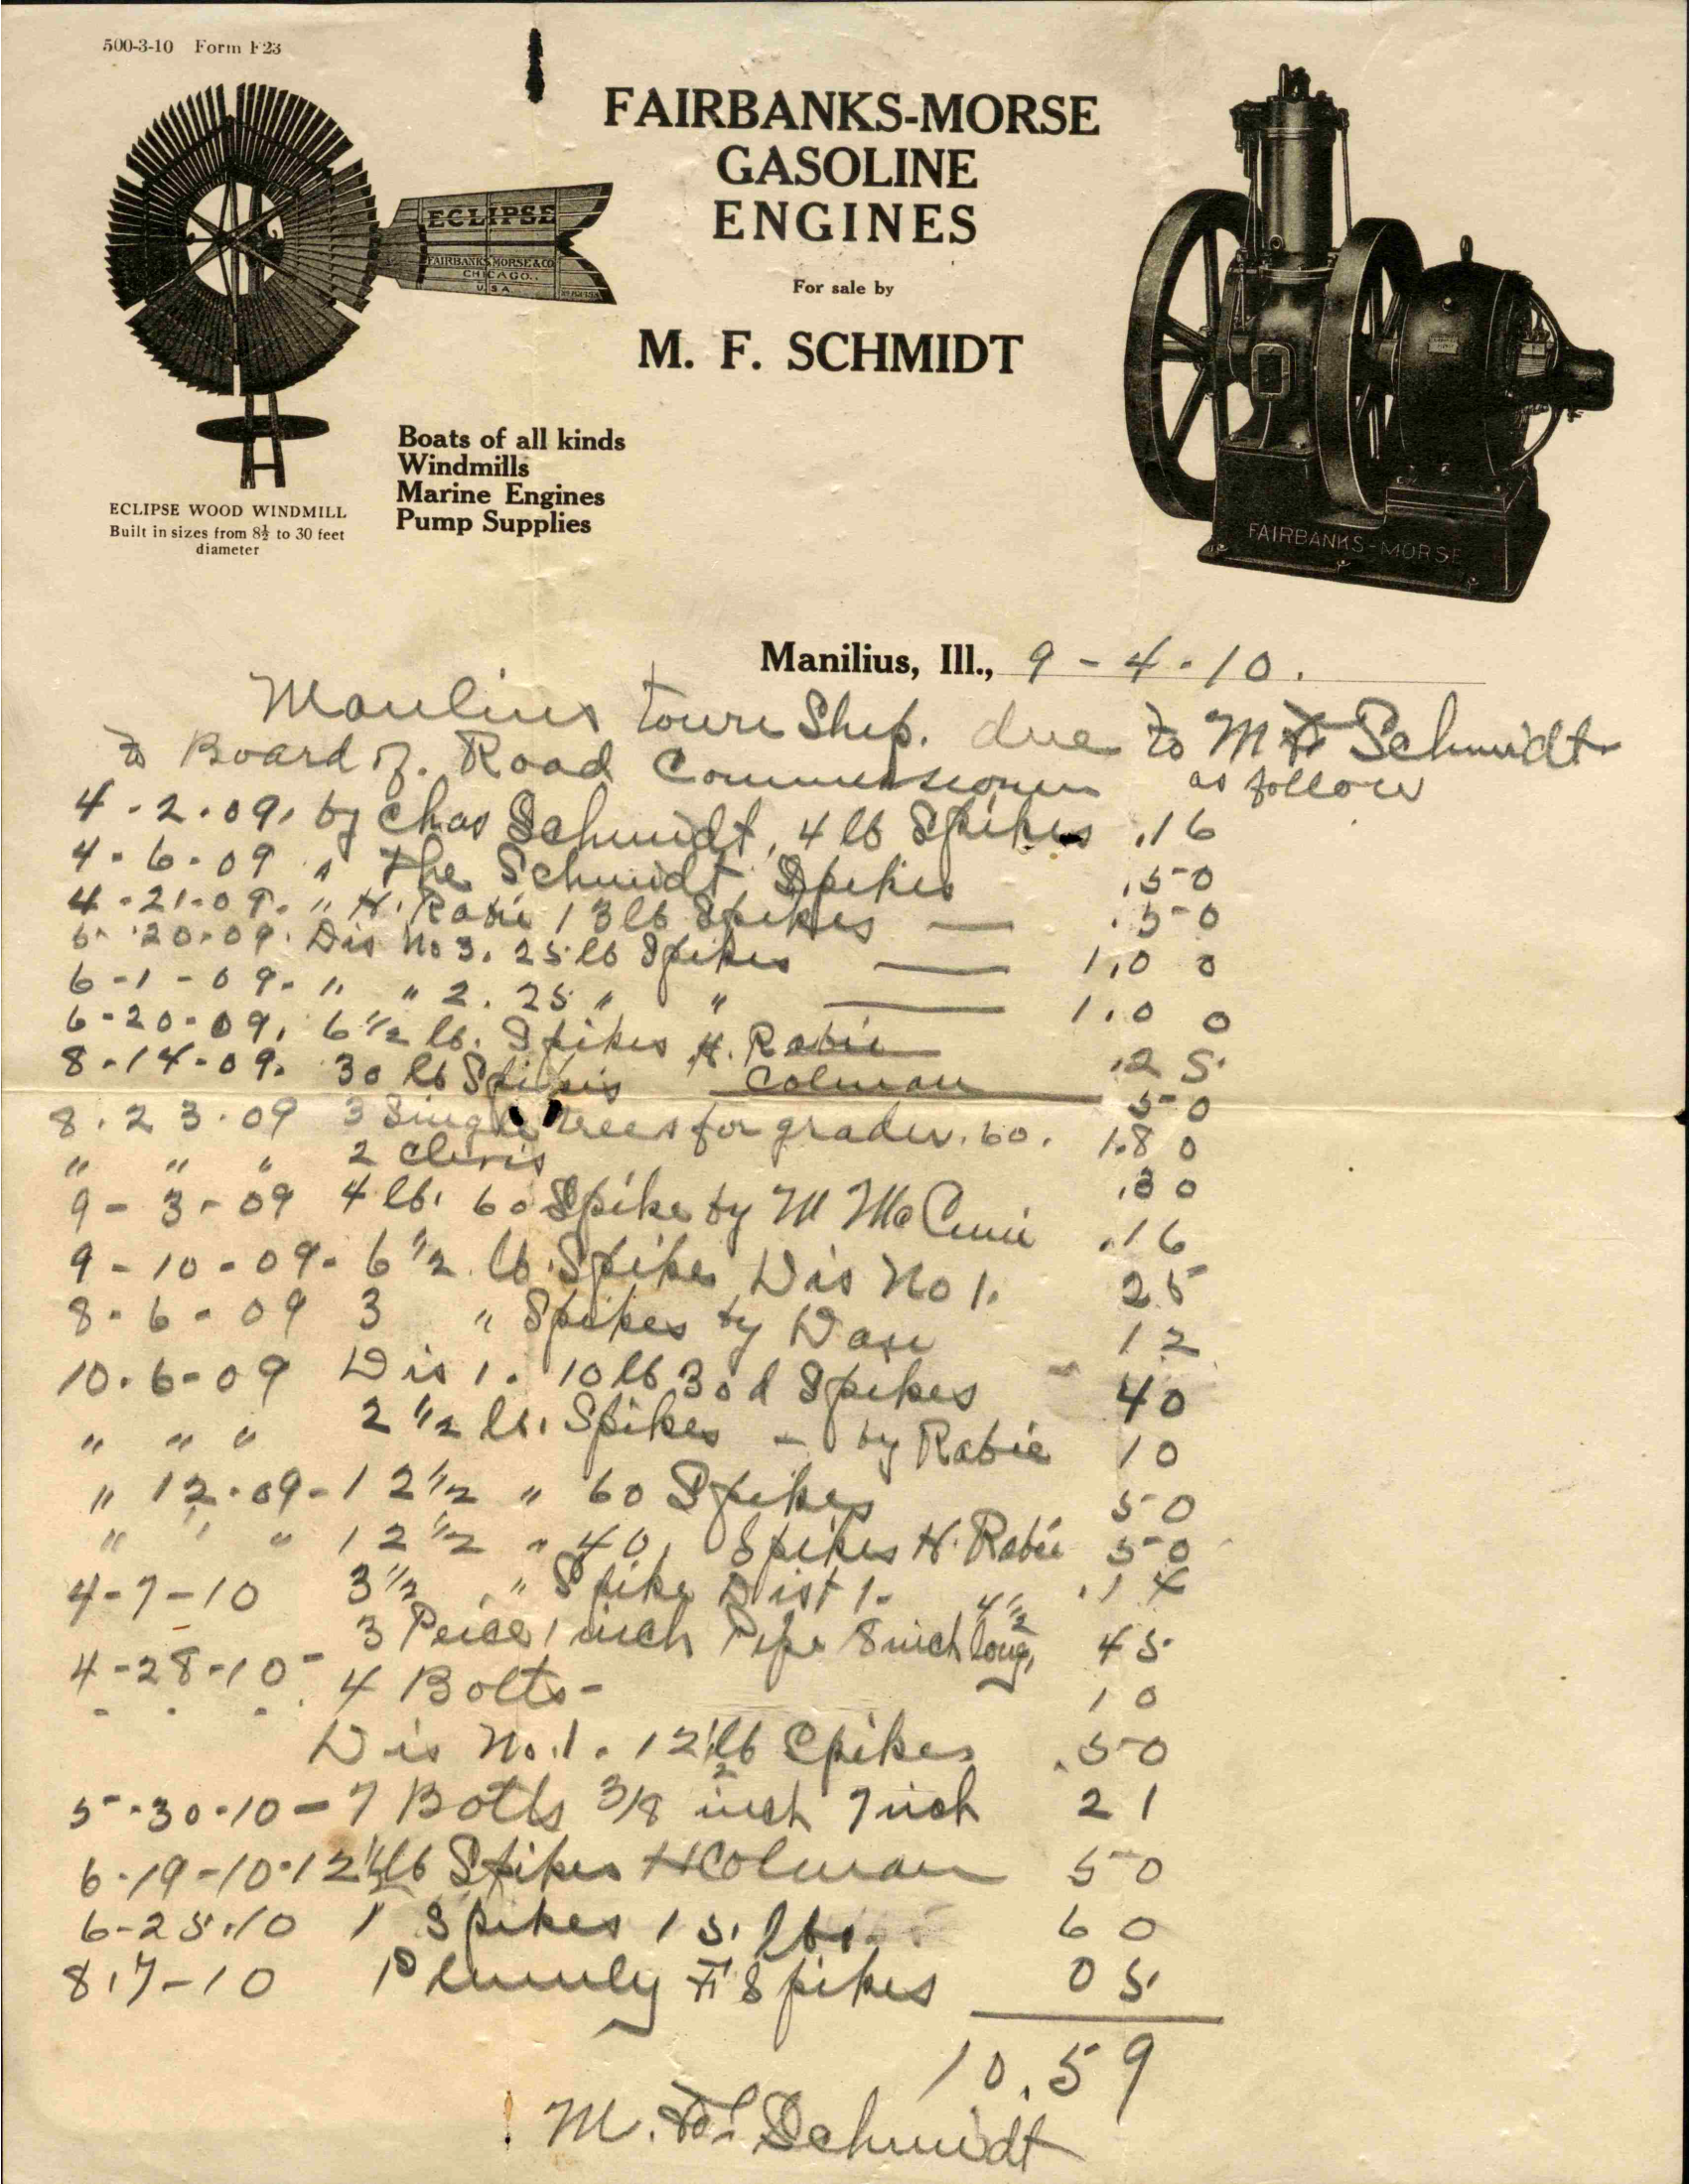 500-3-10 Form F23
FAIRBANKS-MORSE
GASOLINE
ENGINES
For sale by
M. F. SCHMIDT
ECLIPSE
FAIRBANKS MORSE & CO
CHICAGO.
U.S.A.
Boats of all kinds
Windmills
Marine Engines
Pump Supplies
ECLIPSE WOOD WINDMILL
Built in sizes from 8½ to 30 feet
diameter
FAIRBANKS-MORSE
Manilius, Ill., 9-4-10.
Maulius towne Ship. due to M F Schmidt
to Board of. Road Commissioners as follow
4-2-09. by Chas Schmidt, 4 lb Spikes .16
4-6-09 " The Schmidt, Spikes .50
4-21-09. " H. Rabie 13 lb Spikes — .50
20-09. Dis No 3. 25 lb Spikes — 1.00
6-1-09. " " 2. 25 " " — 1.00
6-20-09. 6 1/2 lb. Spikes H. Rabie .25
8-14-09. 30 lb Spikes Colman 50
8.23.09 3 Single trees for grader. 60. 1.80
" " " 2 Clevis .30
9-3-09 4 lb. 60 Spike by M .16
9-10-09- 6 1/2 lb. Spikes Dis No 1. 25
8-6-09 3 " Spikes by 12
10-6-09 Dis 1. 10 lb 30d Spikes - 40
" " " 2 1/2 lb. Spikes - by Rabie 10
" 12-09-12 1/2 " 60 Spikes 50
" " " 12 1/2 " 40. Spikes H. Rabie 50
4-7-10 3 1/2 " Spike Dist 1. .14
3 Peice 1 inch Pipe 8 inch long, 4 1/2 45
4-28-10- 4 Bolts- 10
Dis No. 1. 12 1/2 lb Spikes .50
5-30-10-7 Botls 3/8 inch 7 inch 21
6-19-10-12 1/2 lb Spikes H Colman 50
6-25-10 1 Spikes 15. lbs. 60
8.7-10 Spikes 05.
10.59
M. F. Schmidt